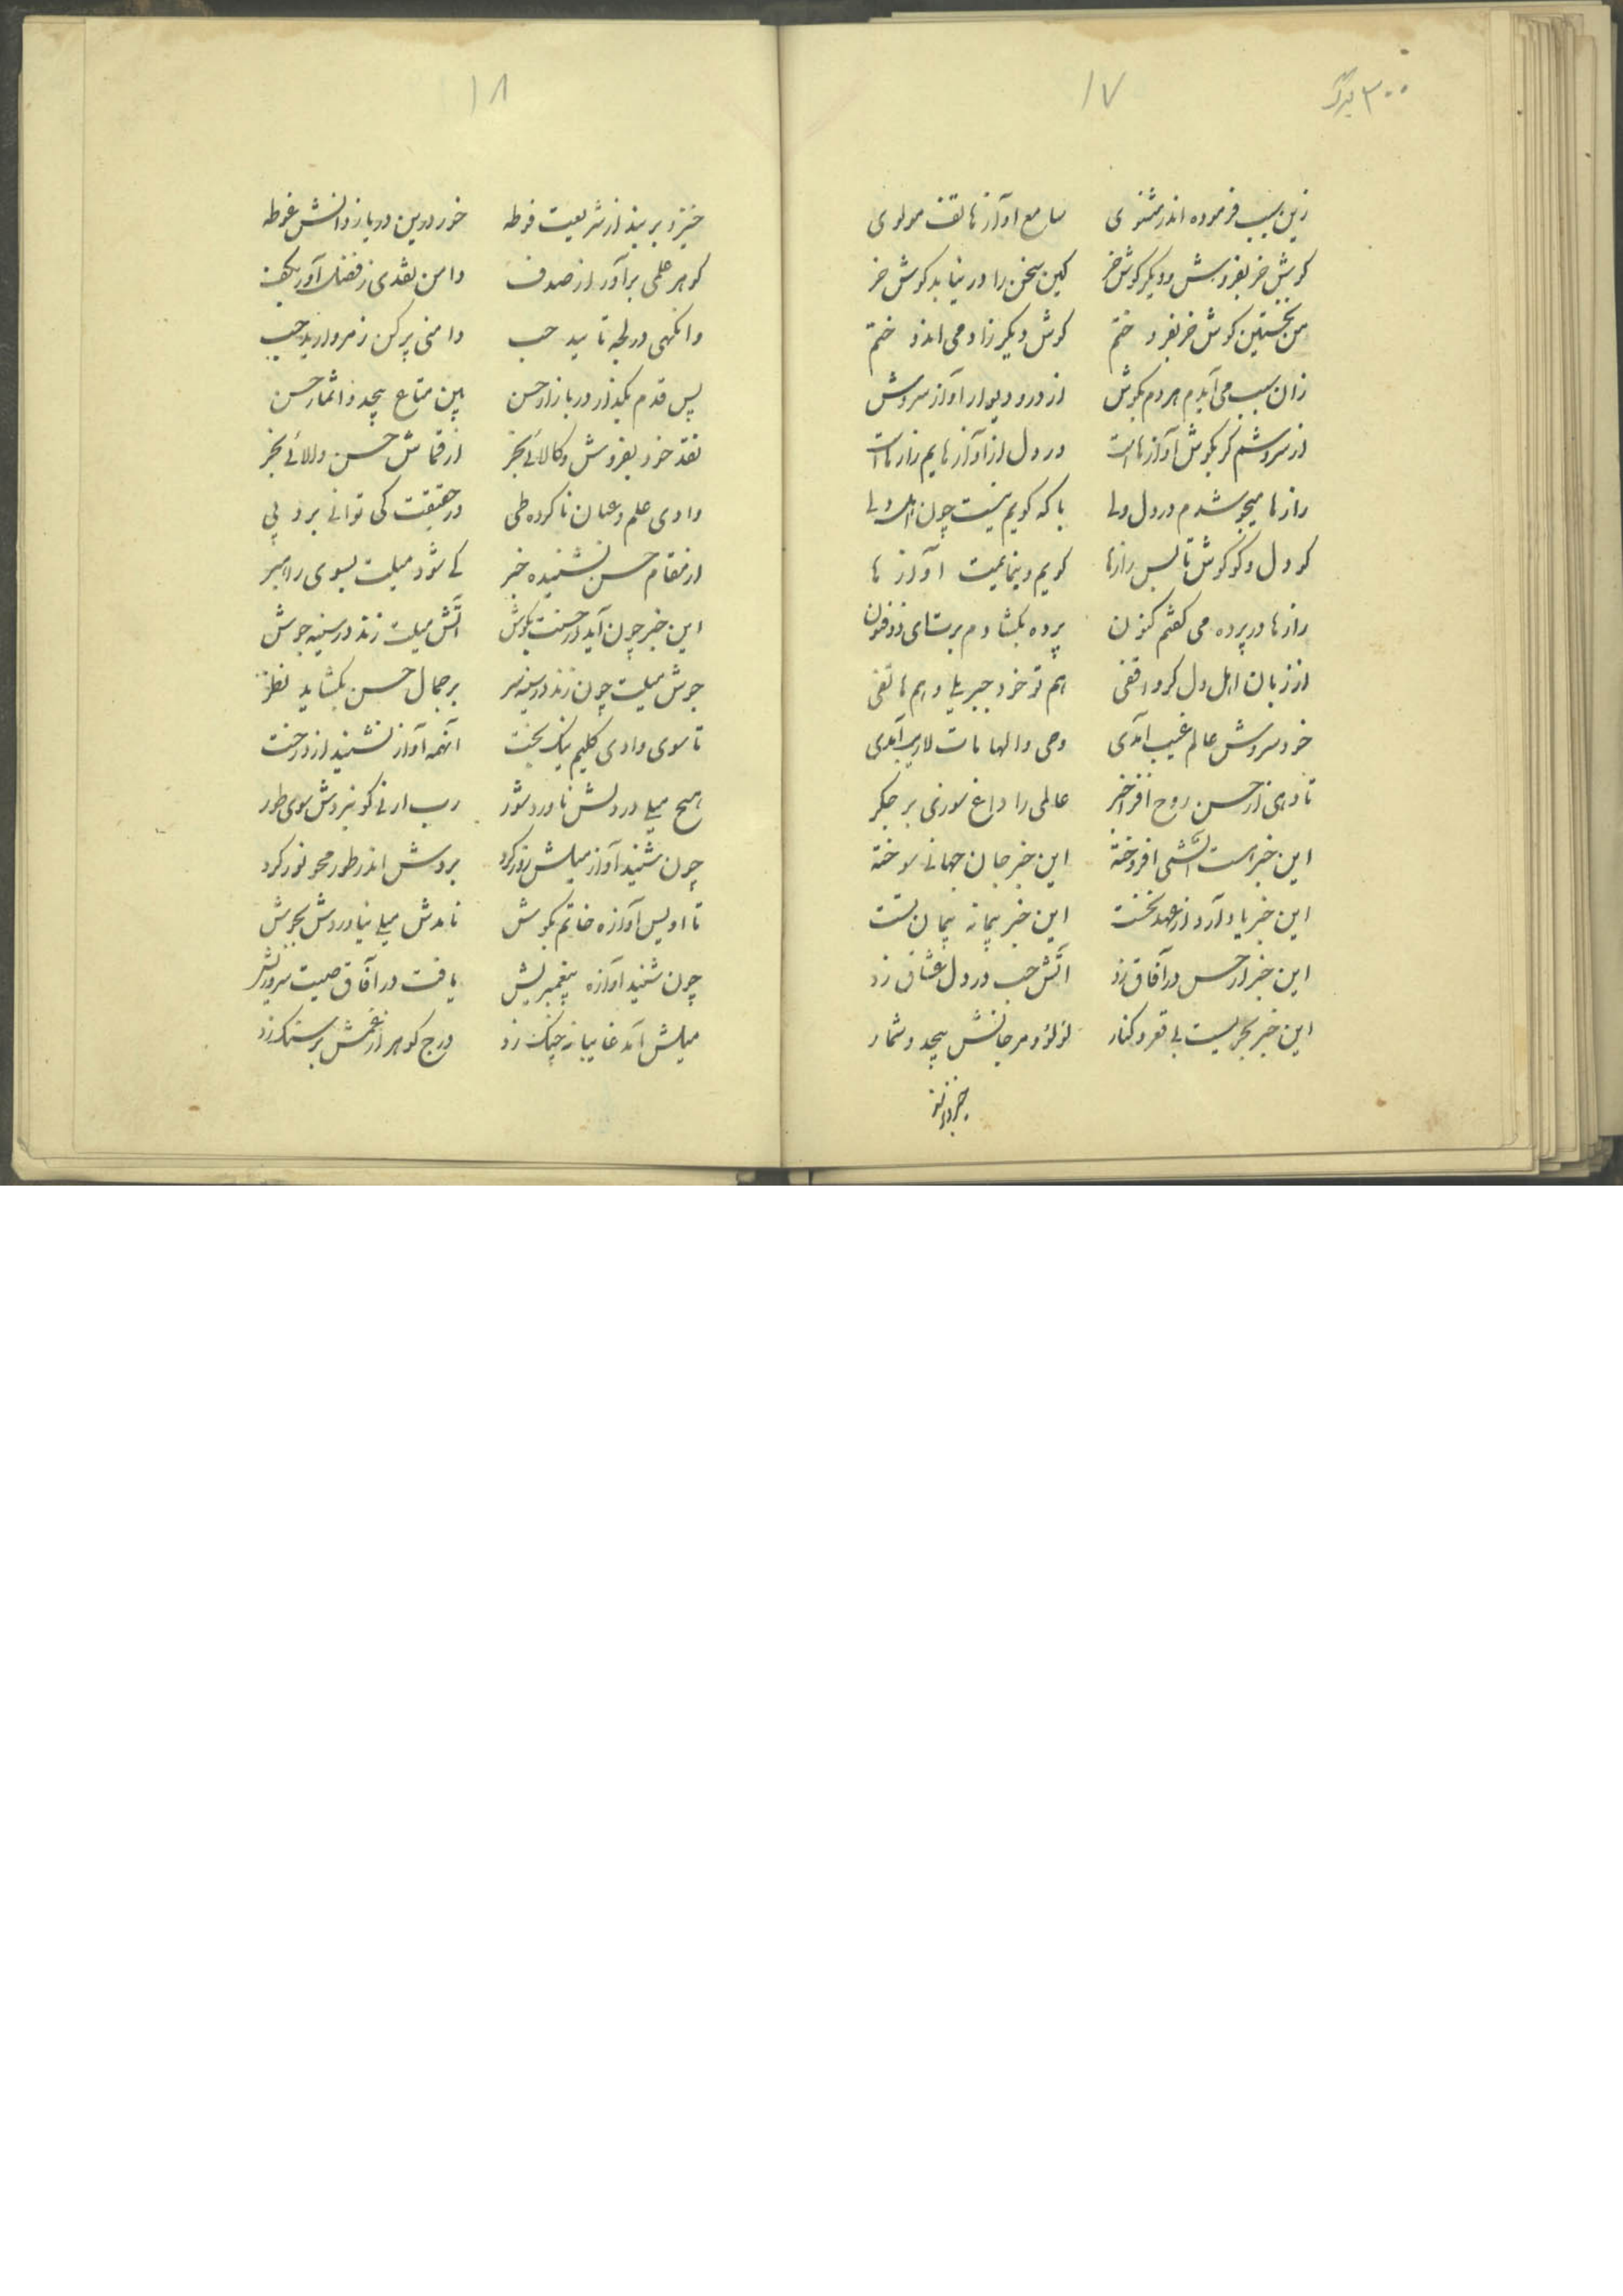 ۳۰۰ برگ
۱۷
زین سبب فرموده اندر مثنوی سامع آواز هاتف مولوی
کوش خر بفروش و دیکر کوش خر کین سخن را در نیابد کوش خر
من نخستین کوش خر بفروختم کوش دیکر زاد می اندوختم
زان سبب می آیدم هر دم بکوش از در و دیوار آواز سروش
از سروشم کر بکوش آوازهاست در دل از آوازهایم رازهاست
رازها میجوشدم در دل ولی با که کویم نیست چون اهل دلی
کو دل و کو کوش تا بس رازها کویم و بنمایمت آوازها
رازها در پرده می کفتم کنون پرده بکشادم برت ای ذوفنون
از زبان اهل دل کر واقفی هم تو خود جبریل و هم هاتفی
خود سروش عالم غیب آمدی وحی و الهامات لاریب آمدی
تا دهی از حسن روح افزا خبر عالمی را داغ سوزی بر جکر
این خبر است آتشی افروخته این خبر جان جهانی سوخته
این خبر یاد آرد از عهد نخست این خبر پیمانه پیمان تست
این خبر از حسن در آفاق زد آتش حب در دل عشاق زد
این خبر بحریست بی قعر و کنار لؤلؤ و مرجانش بیحد و شمار
خیز و بر بند
۱۸
خیز و بر بند از شریعت فوطه خور درین دریای دانش غوطه
کوهر علمی برآور از صدف دامن نقدی ز فضل آور بکف
وانکهی در لجه تایید حب دامنی پر کن ز مروارید حب
پس قدم بکذار در بازار حسن بین متاع بیحد و اثمار حسن
نقد خود بفروش و کالائی بخر از قماش حسن والائی بخر
وادی علم و عیان ناکرده طی در حقیقت کی توانی برد پی
از مقام حسن نشنیده خبر کی شود میلت بسوی راهبر
این خبر چون آید از حسنت بکوش آتش میلت زند در سینه جوش
جوش میلت چون زند در سینه سر بر جمال حسن بکشاید نظر
تا سوی وادی کلیم نیک بخت آنهمه آواز نشنید از درخت
هیچ میلی در دلش ناورد شور رب ارنی کو نبردش سوی طور
چون شنید آواز میلش زور کرد بردش اندر طور محو نور کرد
تا اویس آوازه خاتم بکوش نامدش میلی نیاوردش بجوش
چون شنید آوازه پیغمبریش یافت در آفاق صیت سروریش
میلش آمد غایبانه چنک زد درج کوهر از غمش بر سنک زد